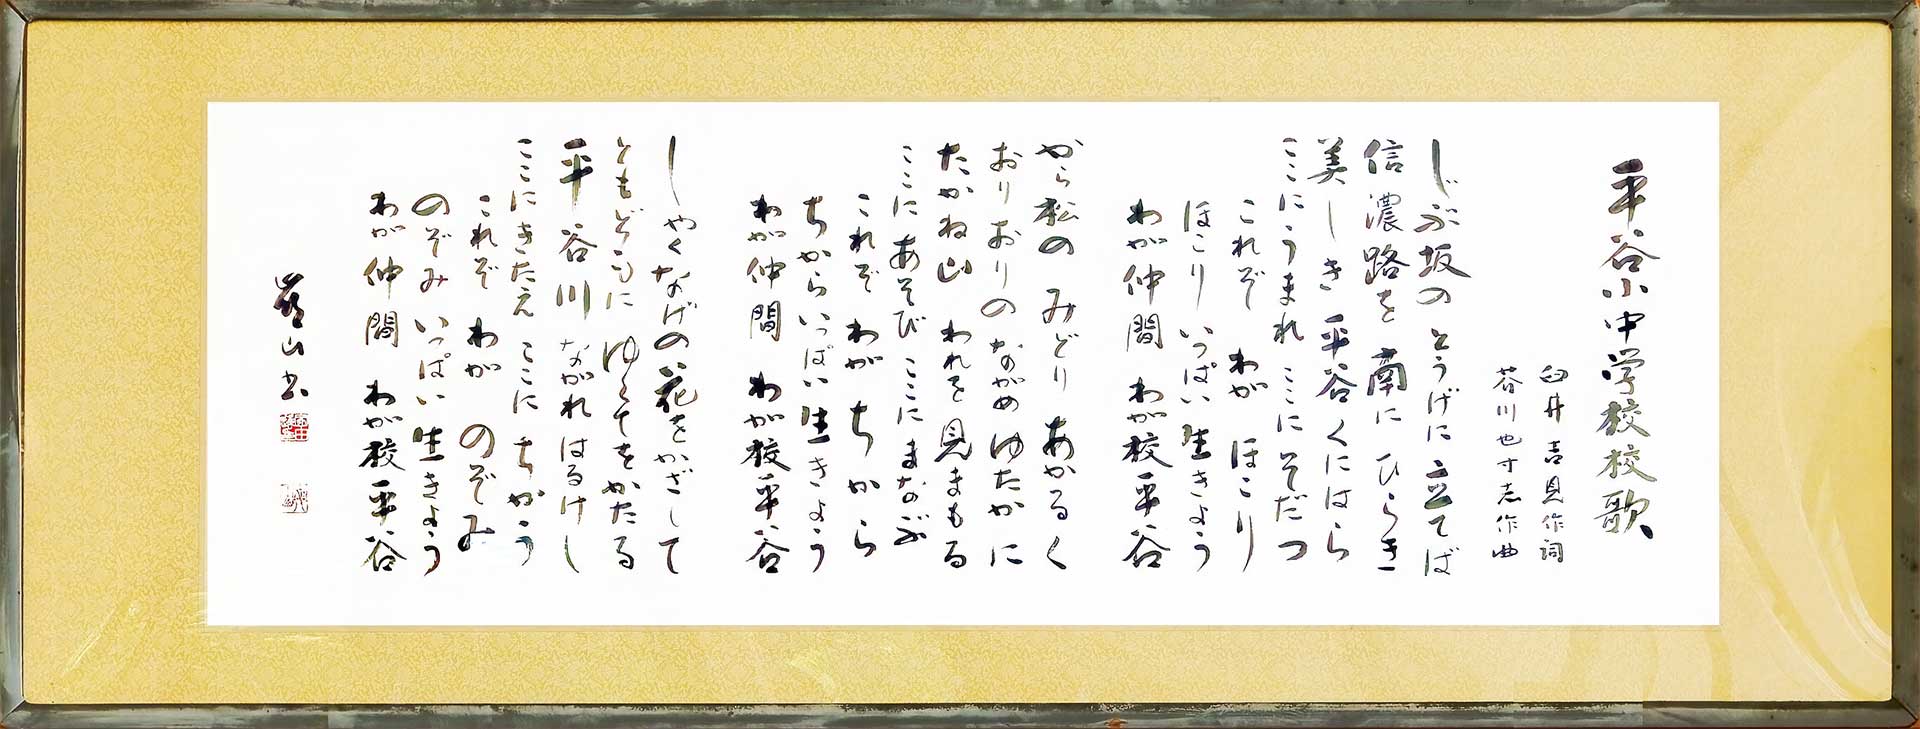 平谷小中学校校歌
臼井吉見作詞
芥川也寸志作曲
じぶ坂の とうげに立てば
信濃路を 南にひらき
美しき 平谷くにはら
ここにうまれ ここにそだつ
これぞ わが ほこり
ほこりいっぱい 生きよう
わが仲間 わが校平谷
から松の みどりあかるく
おりおりの ながめゆたかに
たかね山 われを見まもる
ここにあそび ここにまなぶ
これぞ わが ちから
ちからいっぱい 生きよう
わが仲間 わが校平谷
しやくなげの花をかざして
ともどもに ゆくてをかたる
平谷川 ながれはるけし
ここにきたえ ここに ちかう
これぞ わが のぞみ
のぞみ いっぱい 生きよう
わが仲間 わが校平谷
山書